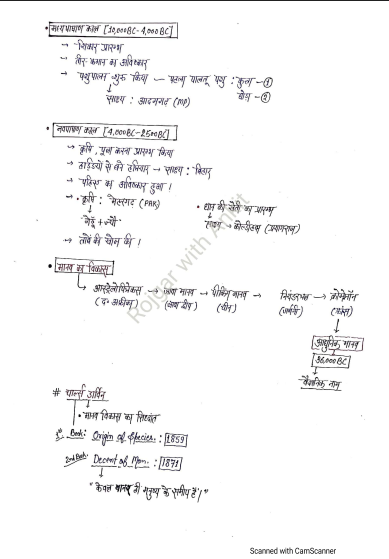 • मध्यपाषाण काल [10,000BC-4,000BC]
→ शिकार प्रारम्भ
→ तीर-कमान का आविष्कार
→ पशुपालन शुरू किया — पहला पालतू पशु : कुत्ता —①
साक्ष्य : आदमगढ़ (MP)
②
• नवपाषाण काल [4,000BC-2500BC]
→ कृषि, पूजा करना प्रारम्भ किया
→ हड्डियों से बने हथियार → साक्ष्य : बिहार
→ पहिया का आविष्कार हुआ।
→ कृषि : मेहरगढ़ (PAK)
• धान की खेती का प्रारम्भ
गेहूँ + जौ
साक्ष्य → कोल्डीहवा (प्रयागराज)
→ तांबे की खोज की।
• मानव का विकास
→ → जावा मानव → पीकिंग मानव → →
(द॰ अफ्रीका) (जावा द्वीप) (चीन) (जर्मनी) (फ्रांस)
आधुनिक मानव
36,000BC
वैज्ञानिक नाम
# चार्ल्स डार्विन
• मानव विकास का सिद्धांत
1st Book: Origin of Species : 1859
2nd Book: Decent of Man. : 1871
"केवल वानर ही मनुष्य के समीप है।"
Rojgar with Ankit
Scanned with CamScanner